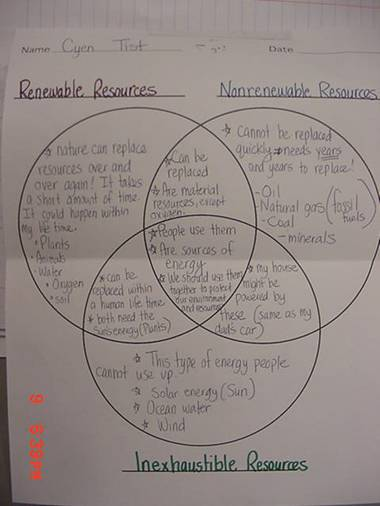 Name Cyen Tist Date
Renewable Resources
Nonrenewable Resources
* nature can replace
resources over and
over again! It takes
a short amount of time.
It could happen within
my life time.
• Plants
• Animals
• Water
• Oxygen
• soil
* Can be
replaced
* Are material
resources, except
oxygen.
* Cannot be replaced
quickly → needs years
and years to replace!
- Oil
- Natural gas (fossil
fuels)
- Coal
- minerals
* People use them
* Are sources of
energy
* We should use them
together to protect
our environment
and resources
* can be
replaced within
a human life time
* both need the
sun's energy (Plants)
* my house
might be
powered by
these (same as my
dad's car)
* This type of energy people
cannot use up.
* Solar energy (Sun)
* Ocean water
* Wind
Inexhaustible Resources